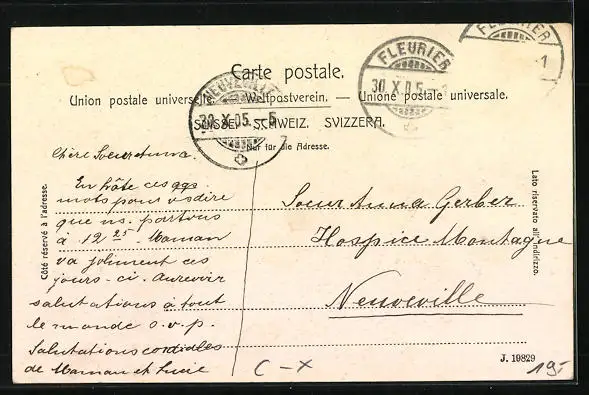 Carte postale.
Union postale universelle. — Weltpostverein. — Unione postale universale.
SUISSE. SCHWEIZ. SVIZZERA.
Nur für die Adresse.
NEUVEVILLE
30.X.05.-5
FLEURIER
30.X.05.-
FLEURIER
1
Côté réservé à l'adresse.
Lato riservato all'indirizzo.
Chère Soeur Anna.
En hâte ces qqs
mots pour vs dire
que ns. partons
à 12 25. Maman
va joliment ces
jours-ci. Au revoir
salutations à tout
le monde s.v.p.
Salutations cordiales
de Maman et Lucie
Soeur Anna Gerber
Hospice Montagne
Neuveville
J. 19829
C-X
19.-